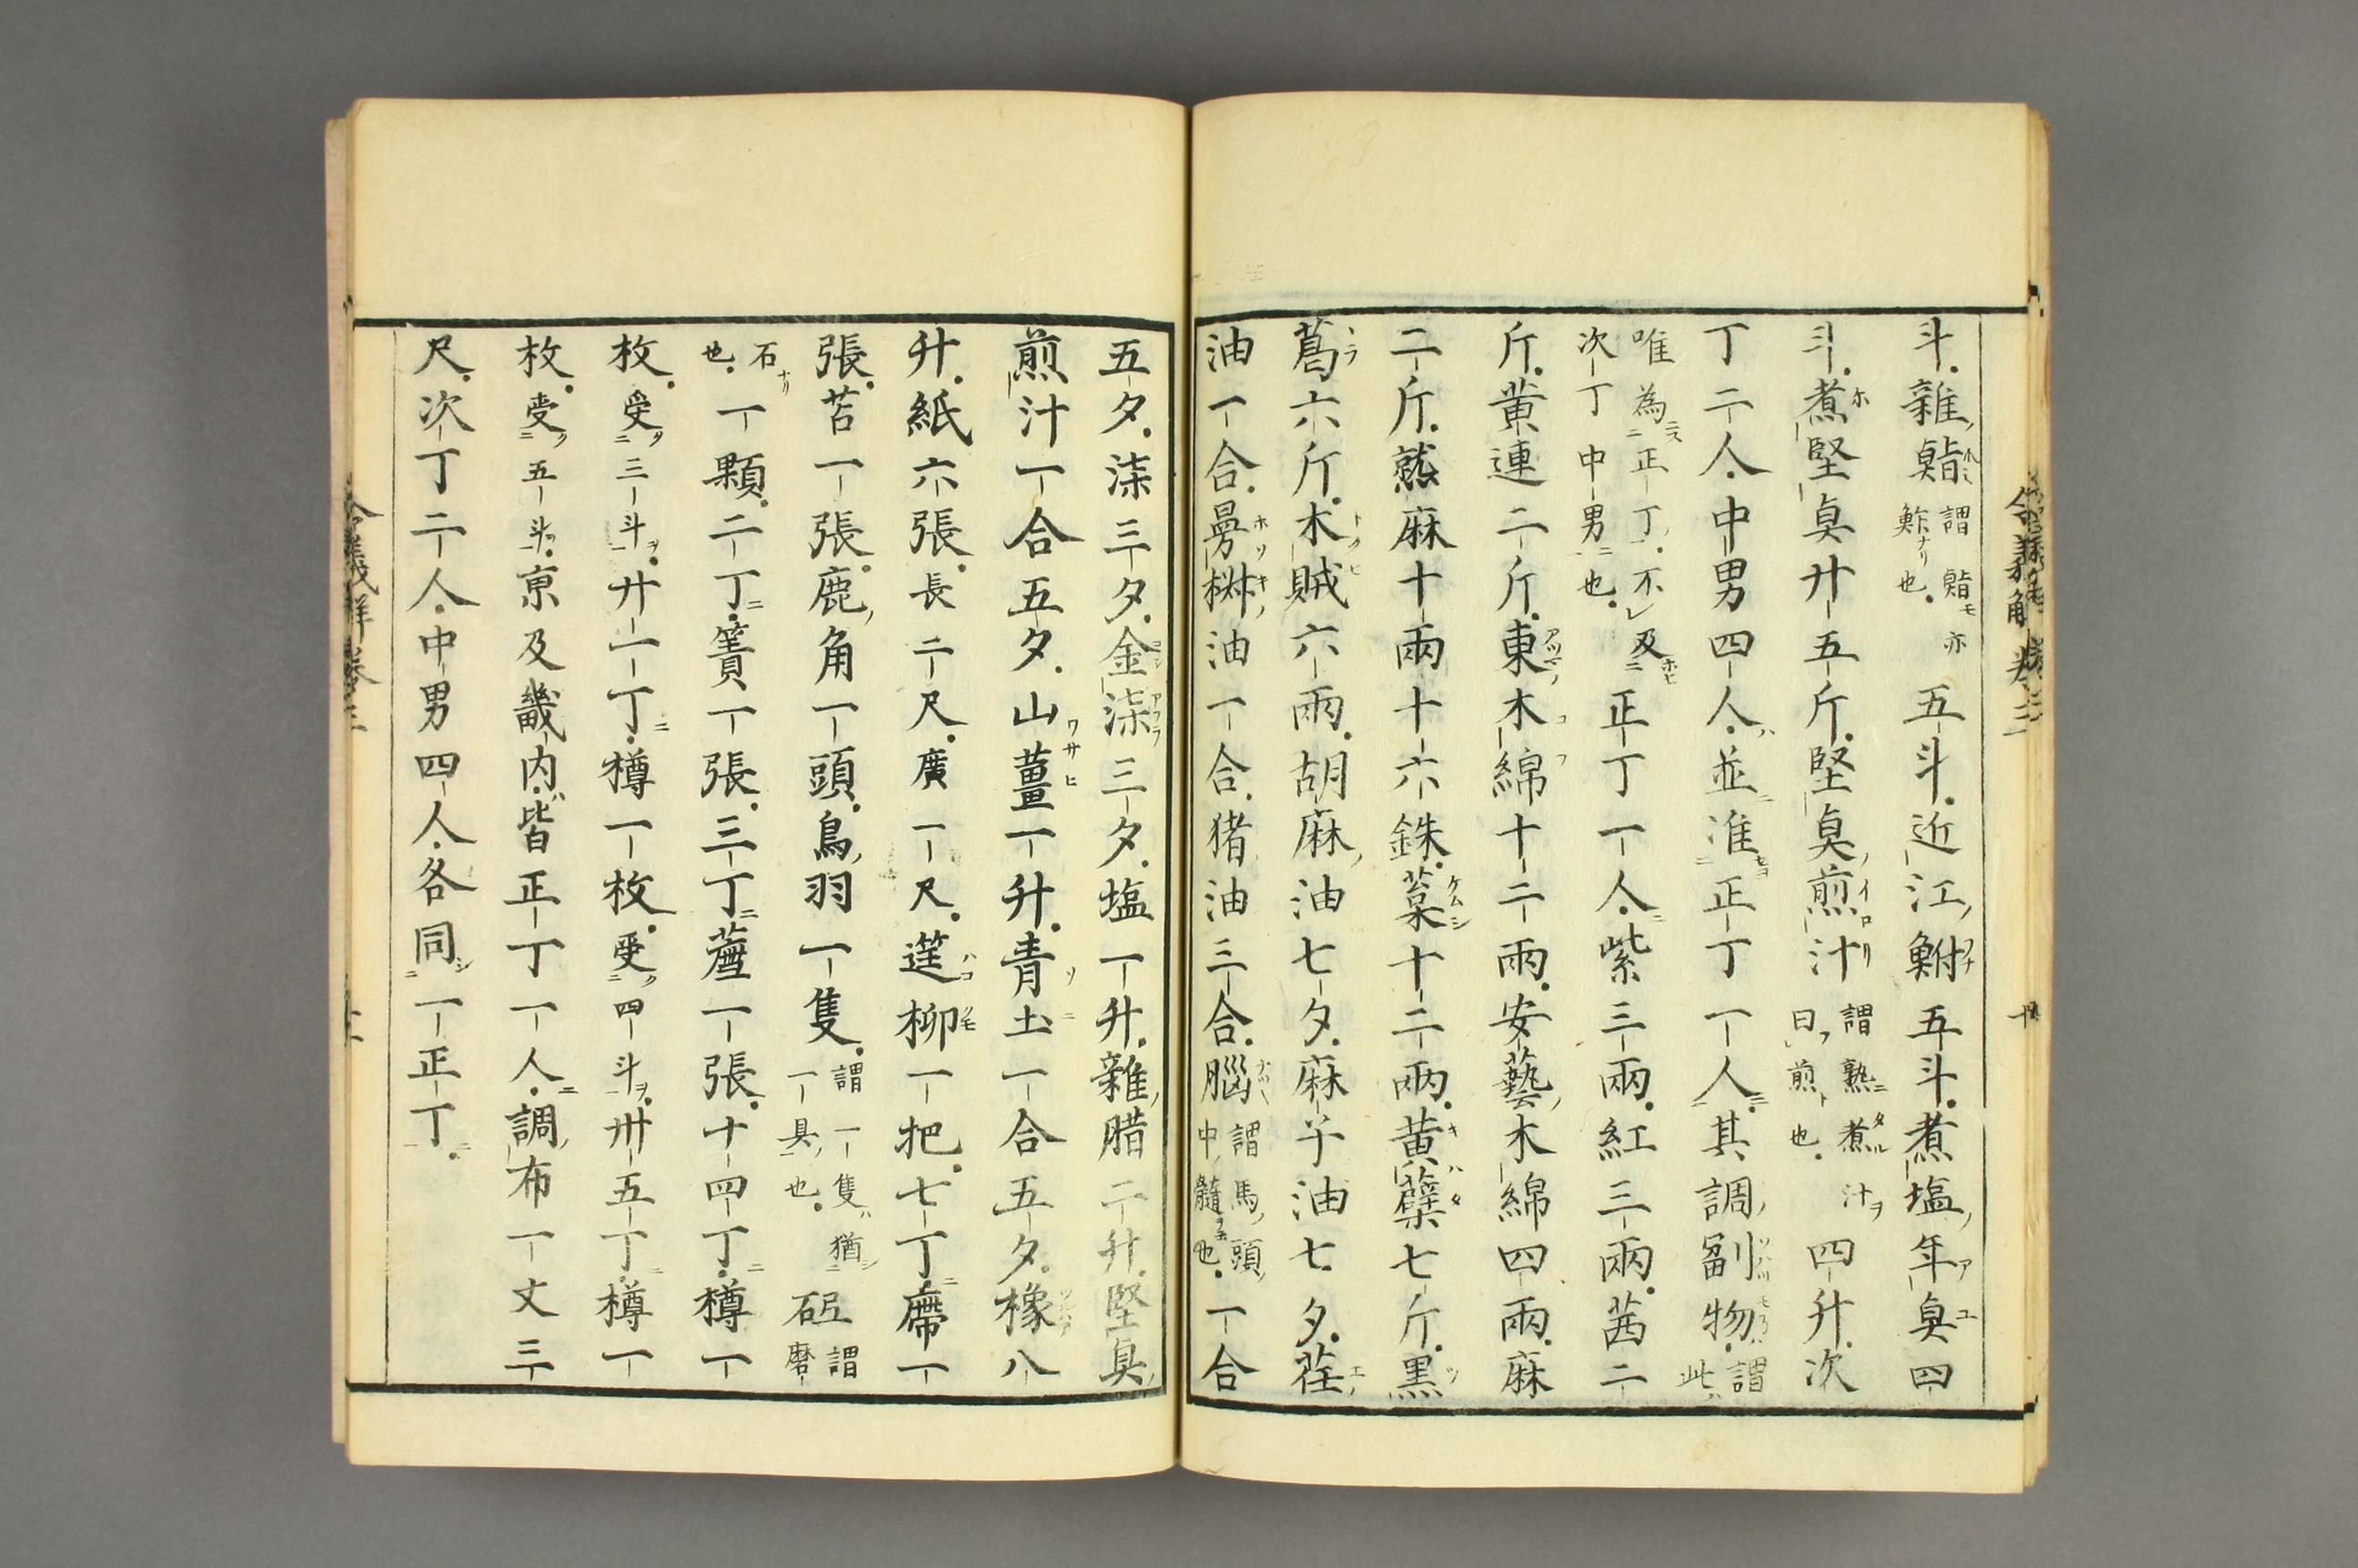 斗雜鮨謂鮨亦鮓也五斗近江鮒五斗煮塩年魚四
斗煮堅魚廿五斤堅魚煎汁謂熟煮汁曰煎也四升次
丁二人中男四人並准正丁一人其調副物謂此
唯為正丁不及次丁中男也正丁一人紫三兩紅三兩茜二
斤黄連二斤東木綿十二兩安藝木綿四兩麻
二斤熟麻十兩十六銖葈十二兩黄蘗七斤黒
葛六斤木賊六兩胡麻油七夕麻子油七夕荏
油一合曼椒油一合猪油三合腦謂馬頭中髓也一合
五夕漆三夕金漆三夕塩一升雜腊二升堅魚
煎汁一合五夕山薑一升青土一合五夕橡八
升紙六張長二尺廣一尺筐柳一把七丁席一
張苫一張鹿角一頭鳥羽一隻謂一隻猶一具也砥謂磨
石也一顆二丁簀一張三丁薦一張十四丁樽一
枚受三斗廿一丁樽一枚受四斗卅五丁樽一
枚受五斗京及畿内皆正丁一人調布一丈三
尺次丁二人中男四人各同一正丁